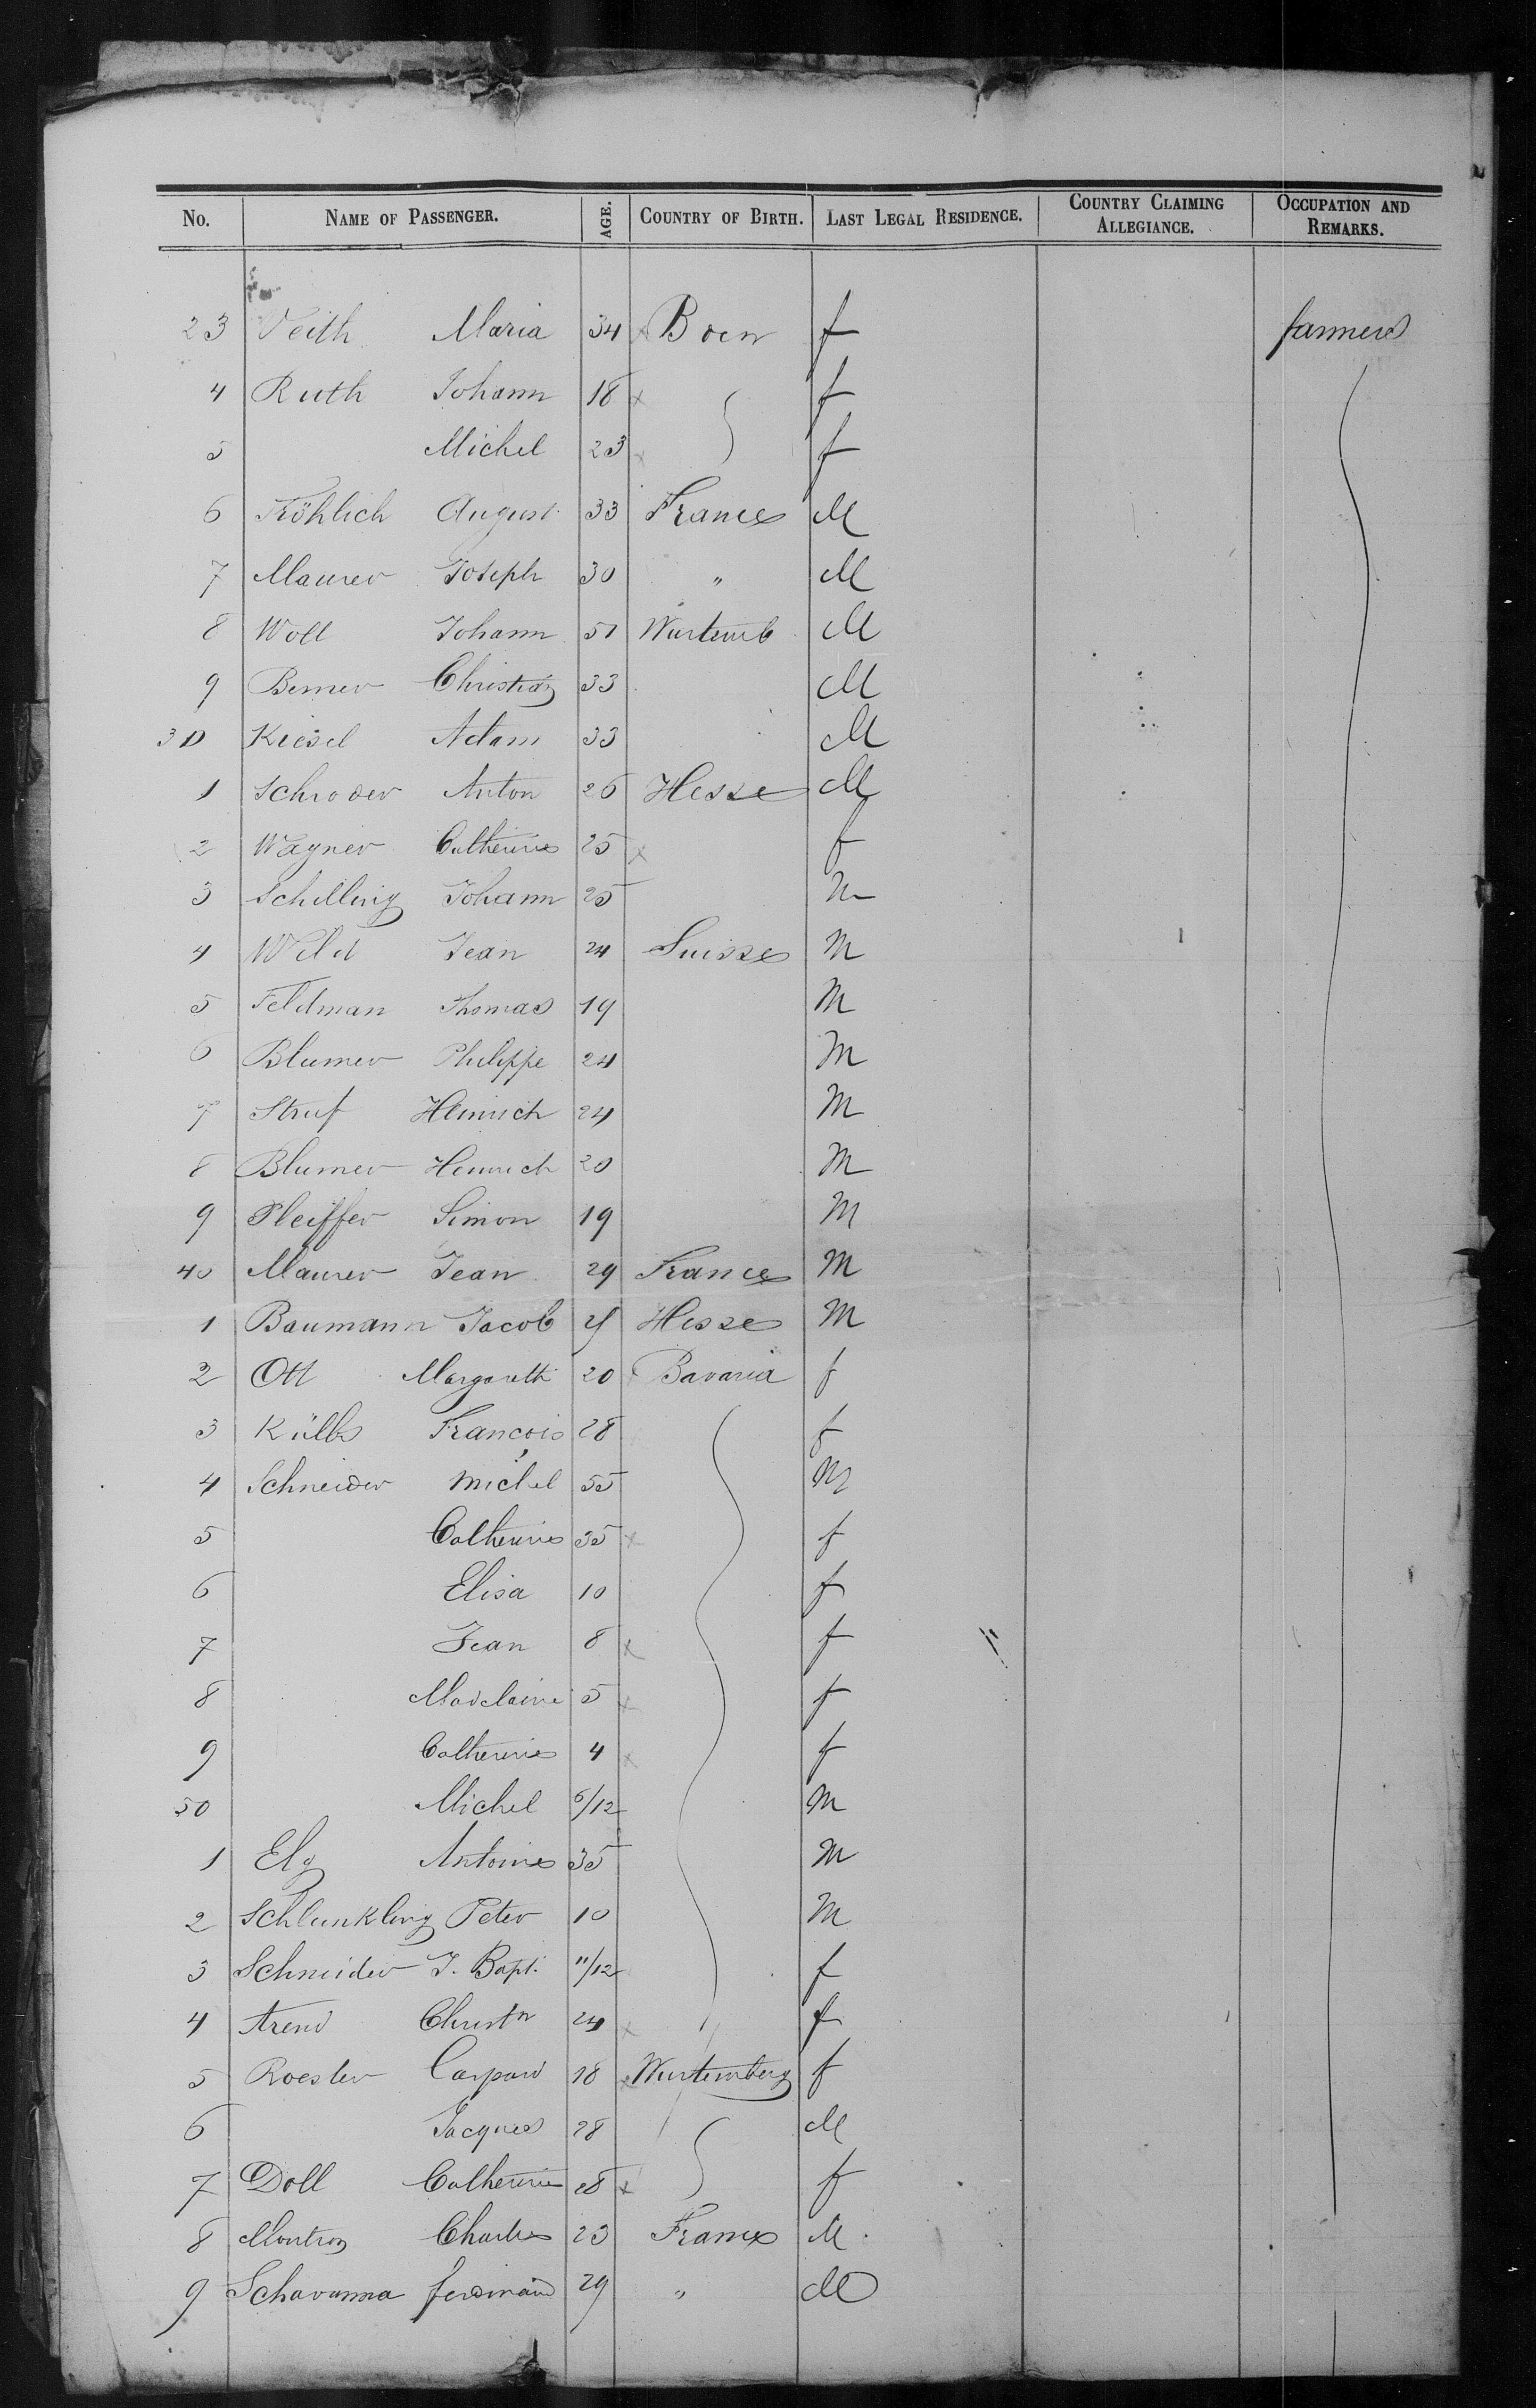 No. NAME OF PASSENGER. AGE. COUNTRY OF BIRTH. LAST LEGAL RESIDENCE. COUNTRY CLAIMING ALLEGIANCE. OCCUPATION AND REMARKS.
23 Veith Maria 34 f farmers
4 Ruth Johann 18 f
5 Michel 23 f
6 Fröhlich August 33 France M
7 Maurer Joseph 30 " M
8 Woll Johann 51 Wurtemb M
9 Berner Christian 33 M
30 Kiesel Adam 33 M
1 Schroder Anton 26 Hesse M
2 Wagner Catherine 25 f
3 Schilling Johann 25 M
4 Wild Jean 24 Suisse M
5 Feldman Thomas 19 M
6 Blumer Philippe 24 M
7 Struf Heinrich 24 M
8 Blumer Heinrich 20 M
9 Pleiffer Simon 19 M
40 Maurer Jean 29 France M
1 Baumann Jacob Hesse M
2 Ott Margareth 20 Bavaria f
3 Külbs François 28 f
4 Schneider Michel 55 M
5 Catherine 35 f
6 Elisa 10 f
7 Jean 8 f
8 Madelaine 5 f
9 Catherine 4 f
50 Michel 6/12 M
1 Antoine 35 M
2 Schlunkling Peter 10 M
3 Schneider J. Bapt. 11/12 f
4 Arend Christn 24 f
5 Roesler Caspard 18 Wurtemberg f
6 Jacques 28 M
7 Doll Catherine 28 f
8 Charles 23 France M
9 Schavanna ferdinand 29 " M